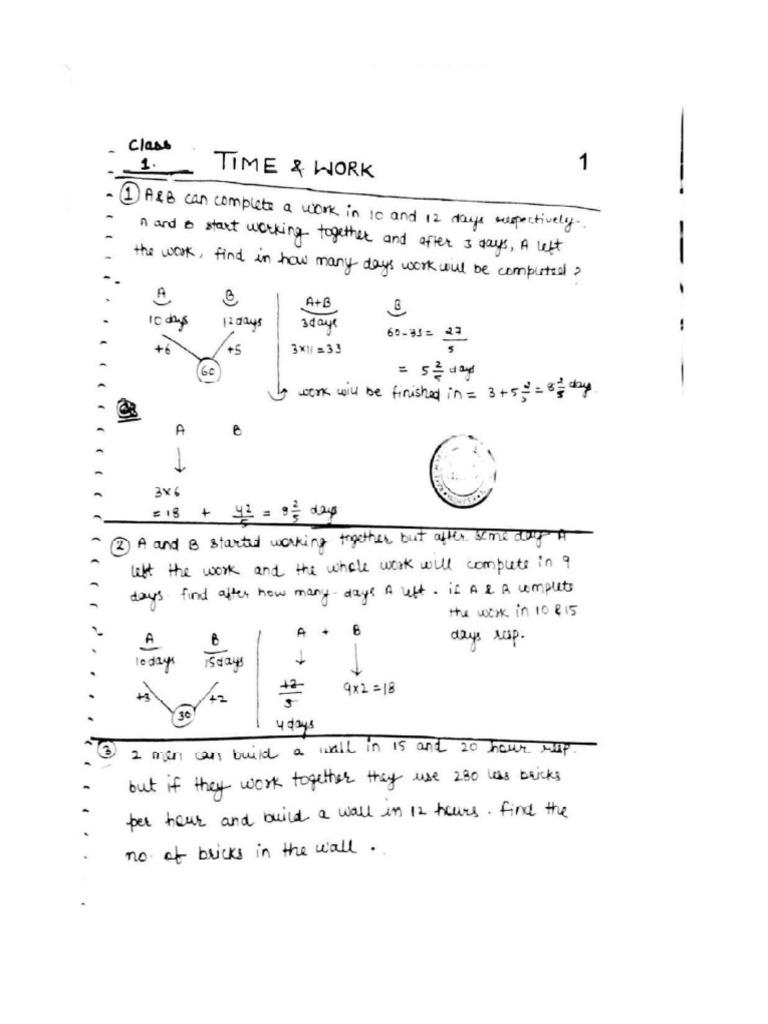 Class
1. TIME & WORK 1
① A&B can complete a work in 10 and 12 days respectively.
A and B start working together and after 3 days, A left
the work, find in how many days work will be completed?
A B A+B B
10 days 12 days 3 days 60-33 = 27/5
+6 +5 3×11=33
60 = 5 2/5 days
work will be finished in = 3 + 5 2/5 = 8 2/5 days.
OR
A B
3×6
= 18 + 42/5 = 8 2/5 days
② A and B started working together but after some day A
left the work and the whole work will complete in 9
days. find after how many days A left. if A & B complete
the work in 10 & 15
days resp.
A B A + B
10 days 15 days
+3 +2 12/3 9×2=18
30
4 days
③ 2 men can build a wall in 15 and 20 hour resp.
but if they work together they use 280 less bricks
per hour and build a wall in 12 hours. find the
no. of bricks in the wall.